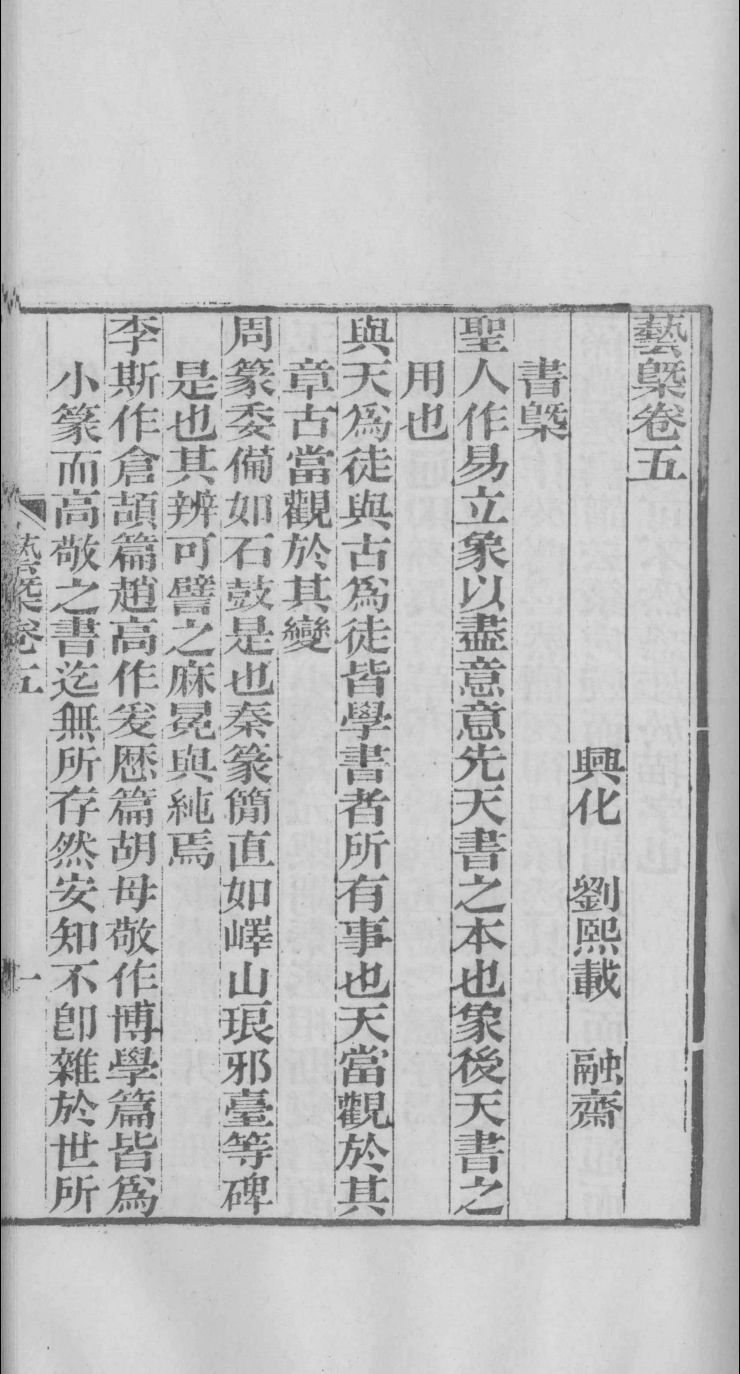 藝槩卷五
興化 劉熙載 融齋
書槩
聖人作易立象以盡意意先天書之本也象後天書之
用也
與天爲徒與古爲徒皆學書者所有事也天當觀於其
章古當觀於其變
周篆委備如石鼓是也秦篆簡直如嶧山琅邪臺等碑
是也其辨可譬之麻冕與純焉
李斯作倉頡篇趙高作爰歷篇胡母敬作博學篇皆爲
小篆而高敬之書迄無所存然安知不卽雜於世所
藝槩卷五
一